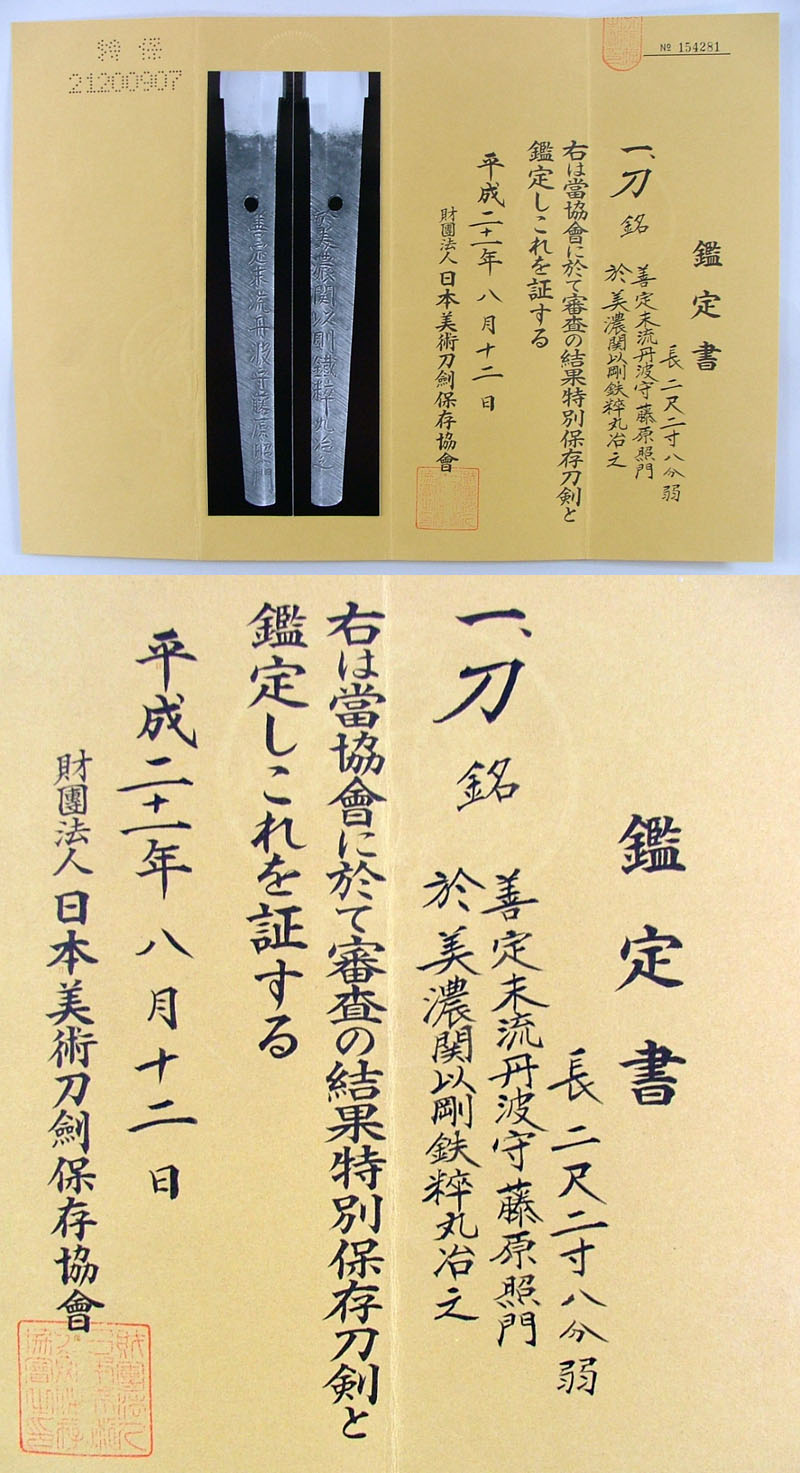 特保
21200907
№ 154281
鑑定書
一、刀 銘
長 二尺二寸八分弱
善定末流丹波守藤原照門
於美濃関以剛鉄粹丸冶之
右は當協會に於て審査の結果特別保存刀剣と
鑑定しこれを証する
平成二十一年八月十二日
財團法人 日本美術刀劍保存協會
善定末流丹波守藤原照門
於美濃関以剛鐵粹丸冶之
鑑定書
一、刀 銘
長 二尺二寸八分弱
善定末流丹波守藤原照門
於美濃関以剛鉄粹丸冶之
右は當協會に於て審査の結果特別保存刀剣と
鑑定しこれを証する
平成二十一年八月十二日
財團法人 日本美術刀劍保存協會